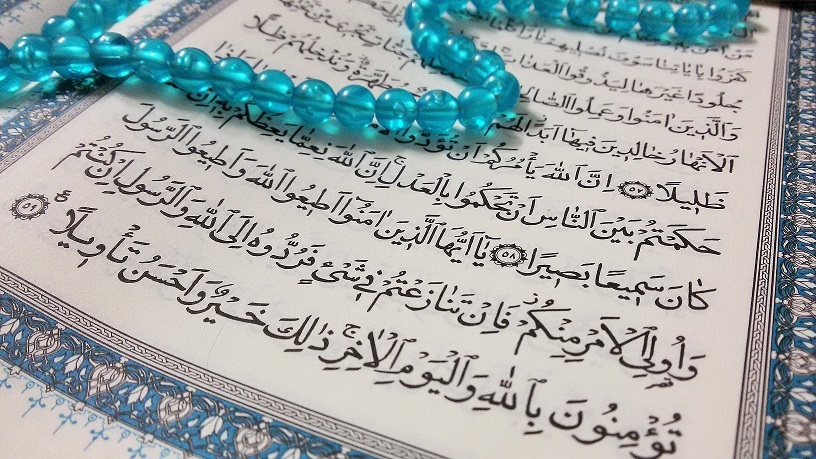 كَفَرُوا بِاٰيَاتِنَا سَوْفَ نُصْلِيهِمْ نَارًا
جُلُودًا غَيْرَهَا لِيَذُوقُوا الْعَذَابَ
وَالَّذِينَ اٰمَنُوا وَعَمِلُوا الصَّالِحَاتِ
الْاَنْهَارُ خَالِدِينَ فِيهَا اَبَدًا لَهُمْ مُطَهَّرَةٌ وَنُدْخِلُهُمْ ظِلًّا
ظَلِيلًا ٥٧ اِنَّ اللّٰهَ يَأْمُرُكُمْ اَنْ تُؤَدُّوا
حَكَمْتُمْ بَيْنَ النَّاسِ اَنْ تَحْكُمُوا بِالْعَدْلِ اِنَّ اللّٰهَ نِعِمَّا يَعِظُكُمْ بِهِ اِنَّ
كَانَ سَمِيعًا بَصِيرًا ٥٨ يَا اَيُّهَا الَّذِينَ اٰمَنُوا اَطِيعُوا اللّٰهَ وَاَطِيعُوا الرَّسُولَ
وَاُولِي الْاَمْرِ مِنْكُمْ فَاِنْ تَنَازَعْتُمْ فِي شَيْءٍ فَرُدُّوهُ اِلَى اللّٰهِ وَالرَّسُولِ اِنْ كُنْتُمْ
تُؤْمِنُونَ بِاللّٰهِ وَالْيَوْمِ الْاٰخِرِ ذٰلِكَ خَيْرٌ وَاَحْسَنُ تَأْوِيلًا ٥٩